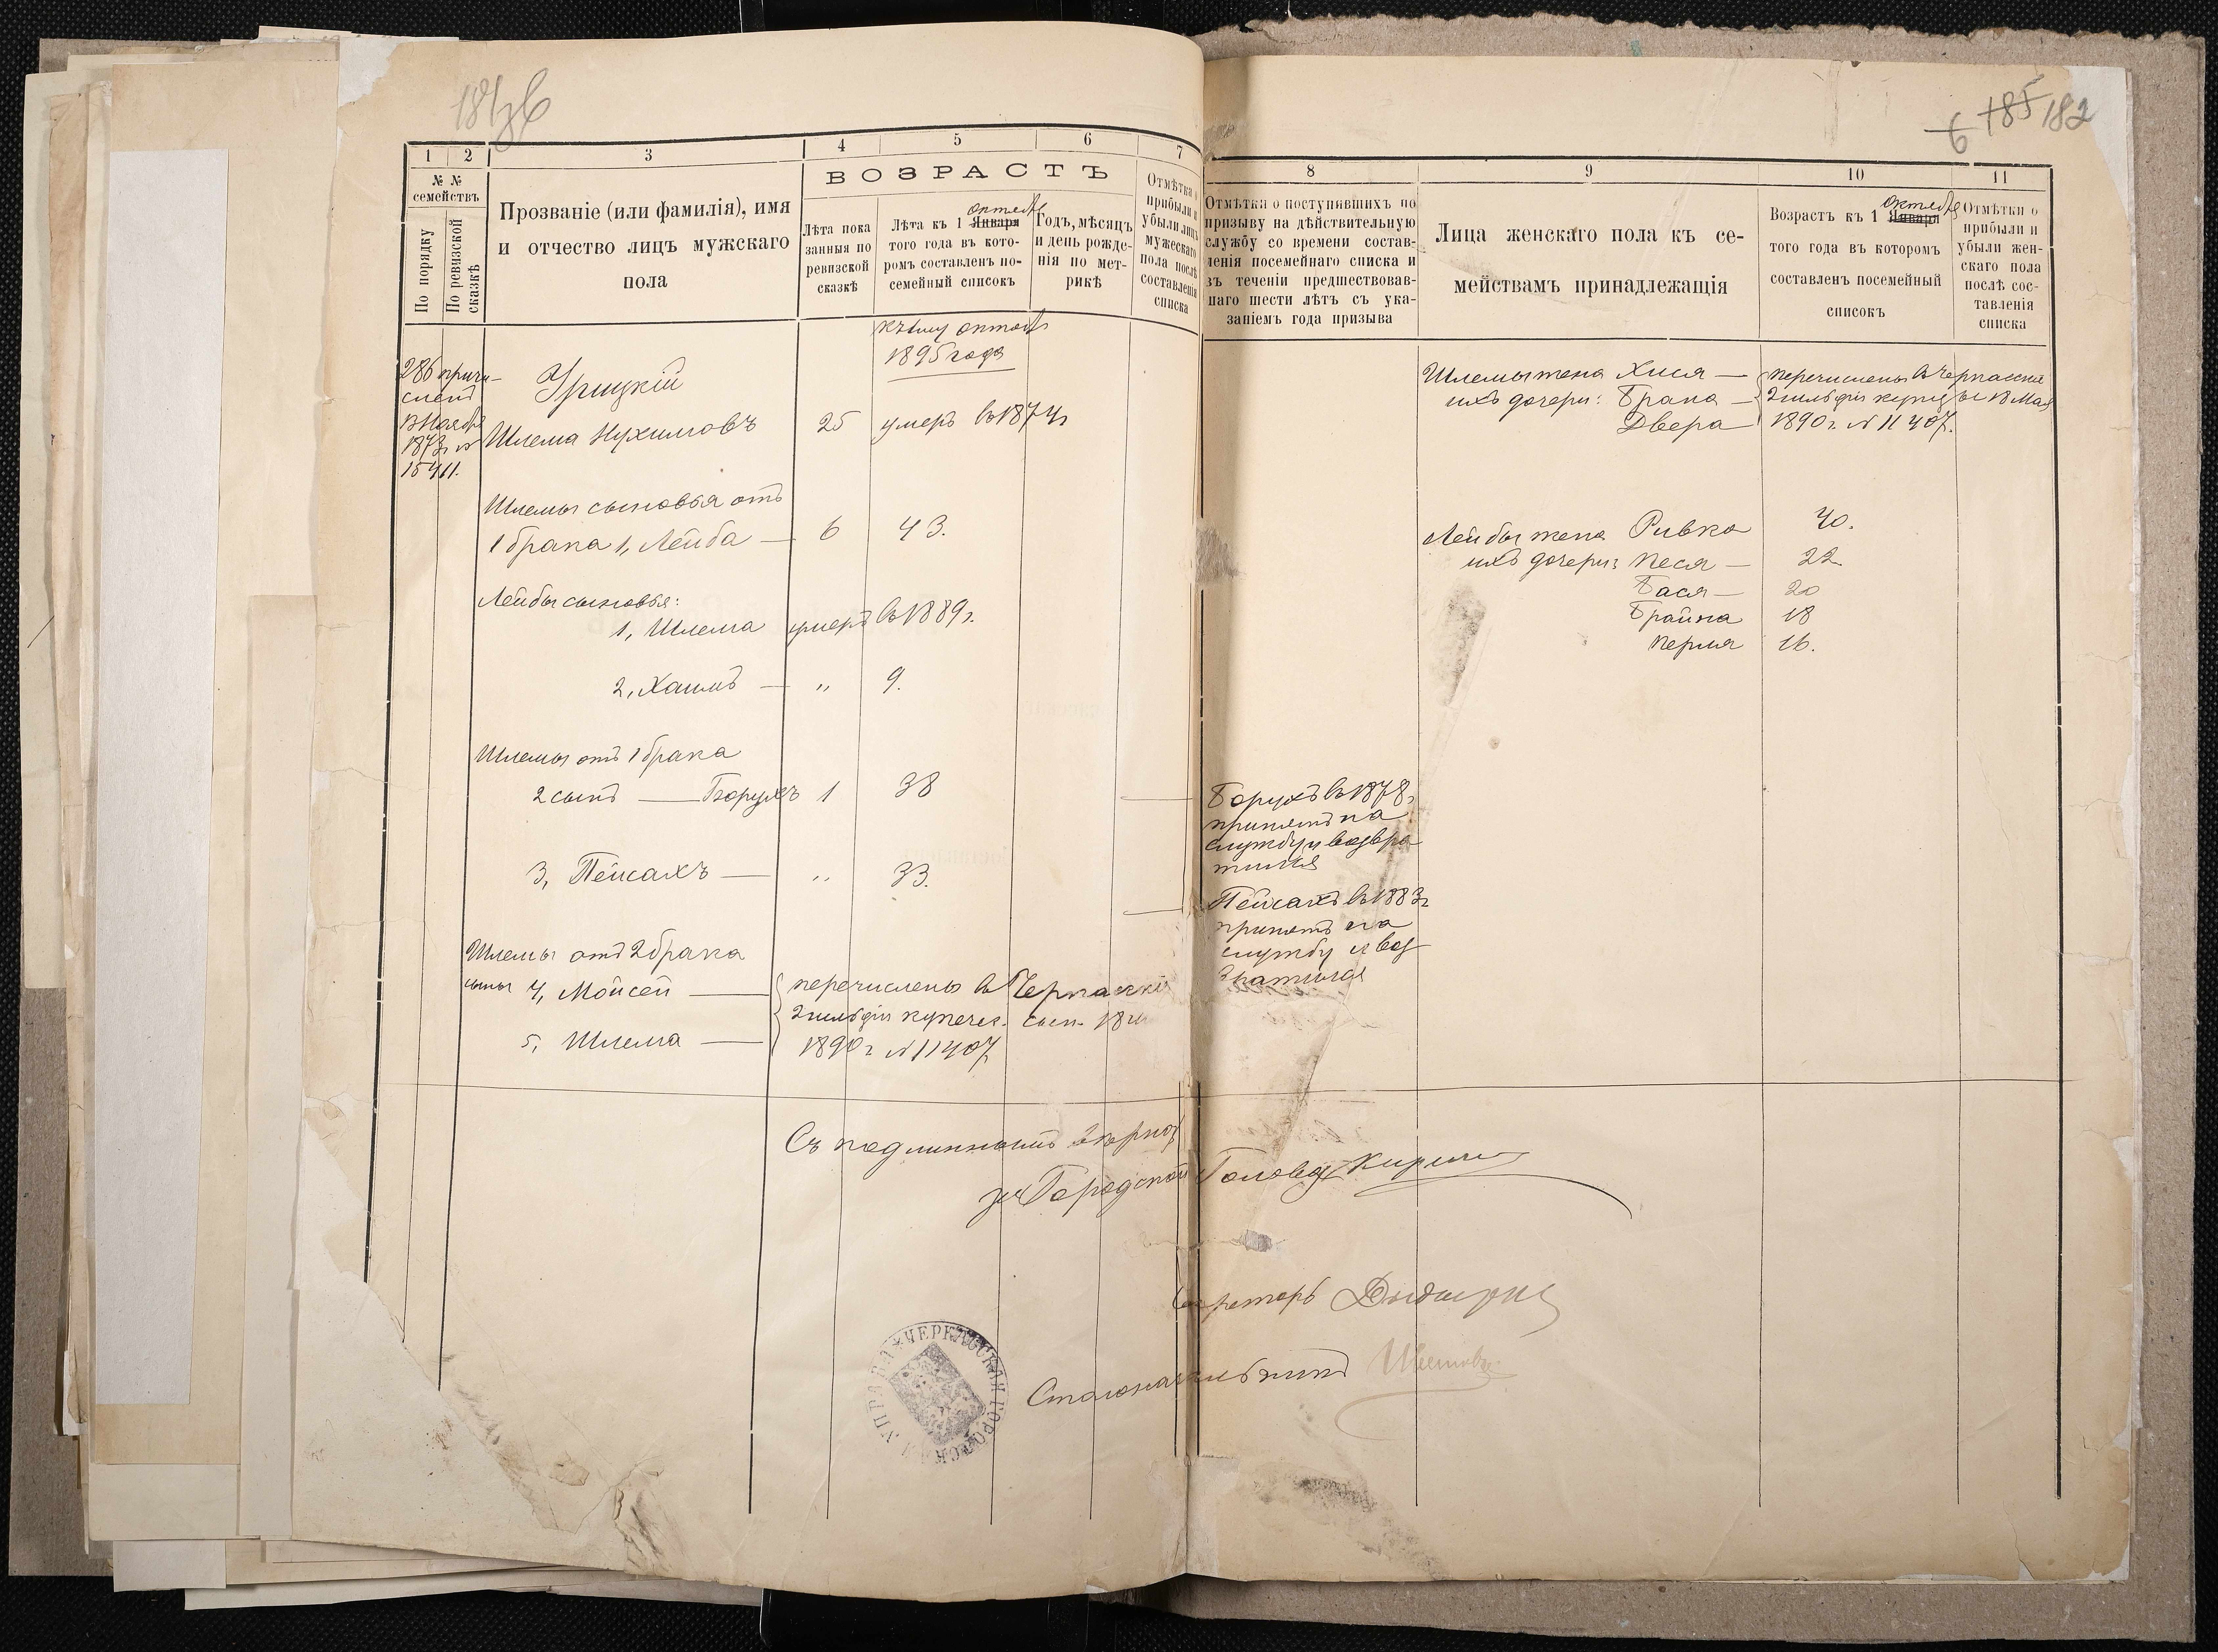 1896
6 185 182
1 2 3 4 5 6 7
№ №
семействъ
По порядку
По ревизской
сказкѣ
Прозваніе (или фамилія), имя
и отчество лицъ мужскаго
пола
ВОЗРАСТЪ
Лѣта пока
занныя по
ревизской
сказкѣ
октября
Лѣта къ 1 Января
того года въ кото-
ромъ составленъ по-
семейный списокъ
Годъ, мѣсяцъ
и день рожде-
нія по мет-
рикѣ
Отмѣтка о
прибыли и
убыли лицъ
мужескаго
пола послѣ
составленія
списка
къ 1му октября
1895 года
286 причи-
сленъ
13 Ноября
1873 г №
15411.
Урицкій
Шлема Нухимовъ 25 умеръ въ 1874 г
Шлемы сыновья отъ
1 брака 1, Лейба — 6 43.
Лейбы сыновья:
1, Шлема умеръ въ 1889 г.
2, Хаимъ — " 9.
Шлемы отъ 1 брака
2 сынъ — Борухъ 1 38
3, Пейсахъ — " 33.
Шлемы отъ 2 брака
сыны 4, Мойсей — перечислены въ Черкаскій
2 гильдіи купечес. сысл. 18
5, Шлема — 1890 г № 11407
8 9 10 11
Отмѣтка о поступившихъ по
призыву на дѣйствительную
службу со времени состав-
ленія посемейнаго списка и
въ теченіи предшествовав-
шаго шести лѣтъ съ ука-
заніемъ года призыва
Лица женскаго пола къ се-
мействамъ принадлежащія
октября
Возрастъ къ 1 Января
того года въ которомъ
составленъ посемейный
списокъ
Отмѣтки о
прибыли и
убыли жен-
скаго пола
послѣ сос-
тавленія
списка
Шлемы жена Хися — перечислены въ Черкаскіе
ихъ дочери: Брана — 2 гильдіи купцы 18 Мая
Двера 1890 г. № 11407.
Лейбы жена Ривка 40.
ихъ дочери: Песя — 22.
Бася — 20
Брайна 18
Перля 16.
Борухъ въ 1878 г
принятъ на
службу и возвра
тился
Пейсахъ въ 1883 г
принятъ на
службу и воз
вратился
Съ подлиннымъ вѣрно
за Городской Голова
Секретарь
Столоначальникъ
ЧЕРКАССКАЯ ГОРОДСКАЯ УПРАВА